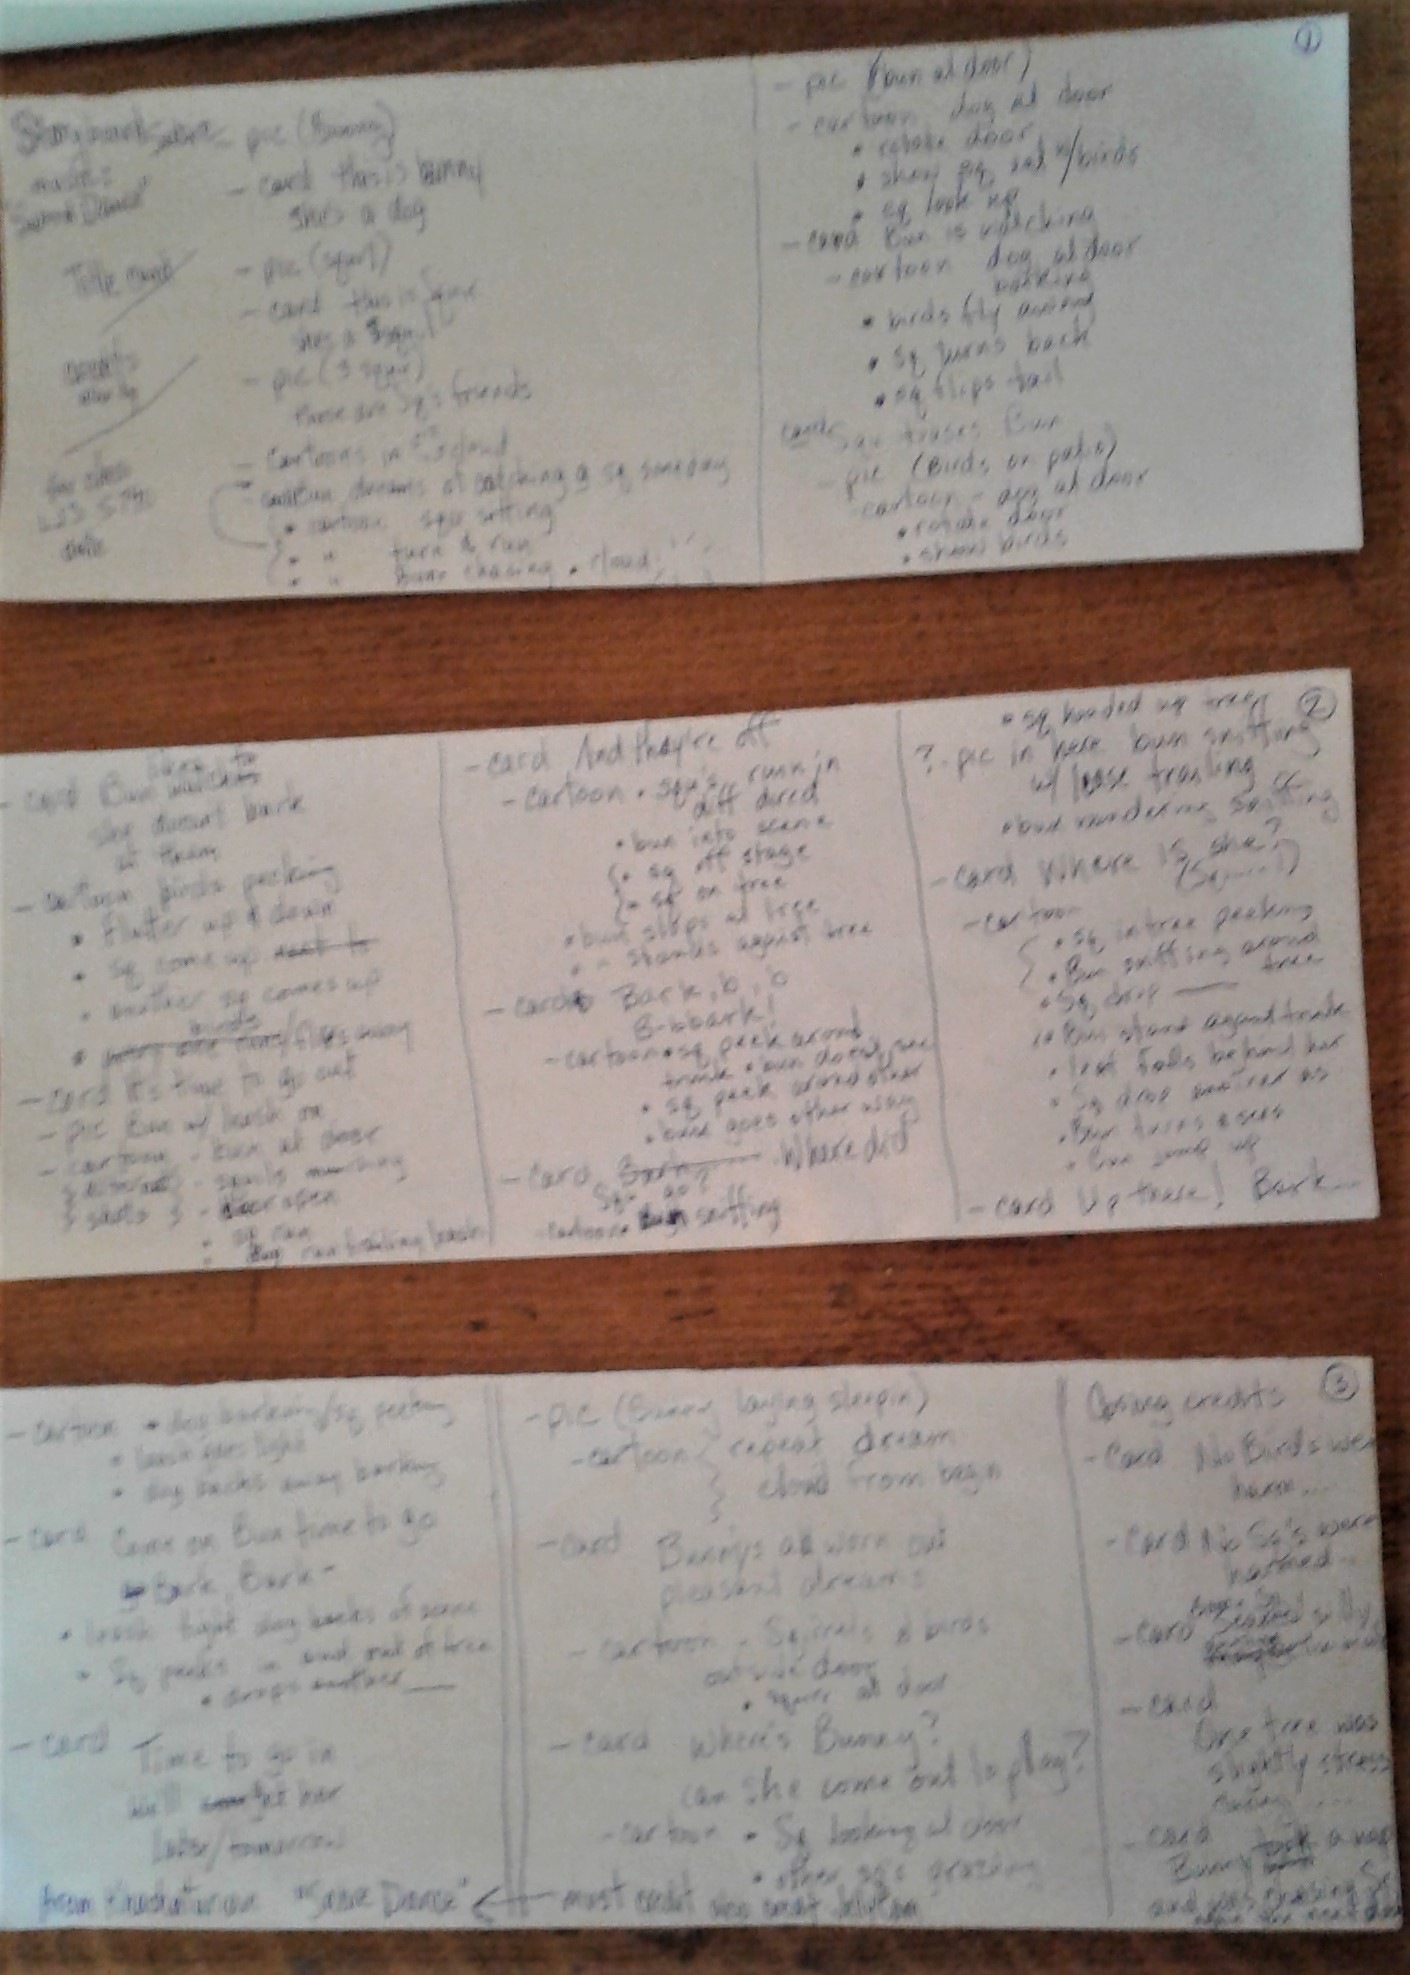 ①
- pic (Bunny)
music
"Sabre Dance"
- card this is bunny
she's a dog
Title card
- pic (squrl)
- card this is Squir
she's a squrl
credits
- pic (3 squr)
these are Sq's friends
- cartoons in cloud
Bun dreams of catching a sq someday
• cartoon squr sitting
• " turn & run
• " Bunn chasing • cloud
- pic (bun at door)
- cartoon dog at door
• rotate door
• show sq eat w/birds
• sq look up
- card Bun is watching
- cartoon dog at door
barking
• birds fly away
• sq turns back
• sq flips tail
card Squ teases Bun
- pic (Birds on patio)
cartoon - dog at door
• rotate door
• show birds
②
likes to
- card Bun watches
she doesn't bark
at them
- cartoon birds pecking
• flutter up & down
• sq come up
• another sq comes up
birds
/flies away
- card it's time to go out
- pic Bun w/ leash on
- cartoon - bun at door
- squls munching
- door open
• sq run
• dog run trailing leash
- card And they're off
- cartoon • squ's runn in
diff direct
• bun into scene
• sq off stage
• sq on tree
• bun stops at tree
• " stands against tree
- card Bark, b, b
B-bbark!
- cartoon • sq peek around
trunk • bun doesn't see
• sq peek around other
• bun goes other way
- card Where did
Sq go?
- cartoon • bun sniffing
• sq headed up tree
? - pic in here bun sniffing
w/ lease trailing or
• bun wandering sniffing
- card Where is she?
- cartoon
• sq in tree peeking
• Bun sniffing around
tree
• Sq drop ___
• Bun stand against trunk
• leaf falls behind her
• Sq drop another as
• Bun turns & sees
• Bun jump up
- card Up there! Bark...
③
- cartoon • dog barking/sq peeking
• leash goes tight
• dog backs away barking
- card Come on Bun time to go
Bark, Bark -
• leash tight dog backs of scene
• Sq peeks in and out of tree
• drops another ___
- card Time to go in
her
later/tomorrow
- pic (Bunny laying sleepin)
- cartoon repeat dream
cloud from begin
- card Bunnys all worn out
pleasant dreams
- cartoon - Sqirrels & birds
outside door
• squrr at door
- card Where's Bunny?
can she come out to play?
- cartoon • Sq looking at door
• other sq's grazing
Closing credits
- Card No Birds were
harm....
- Card No Sq's were
harmed...
- card
- card
One tree was
slightly stress
during ....
- card
Bunny took a nap
and was chasing Sq
from Khachaturian "Sabre Dance" ← must credit